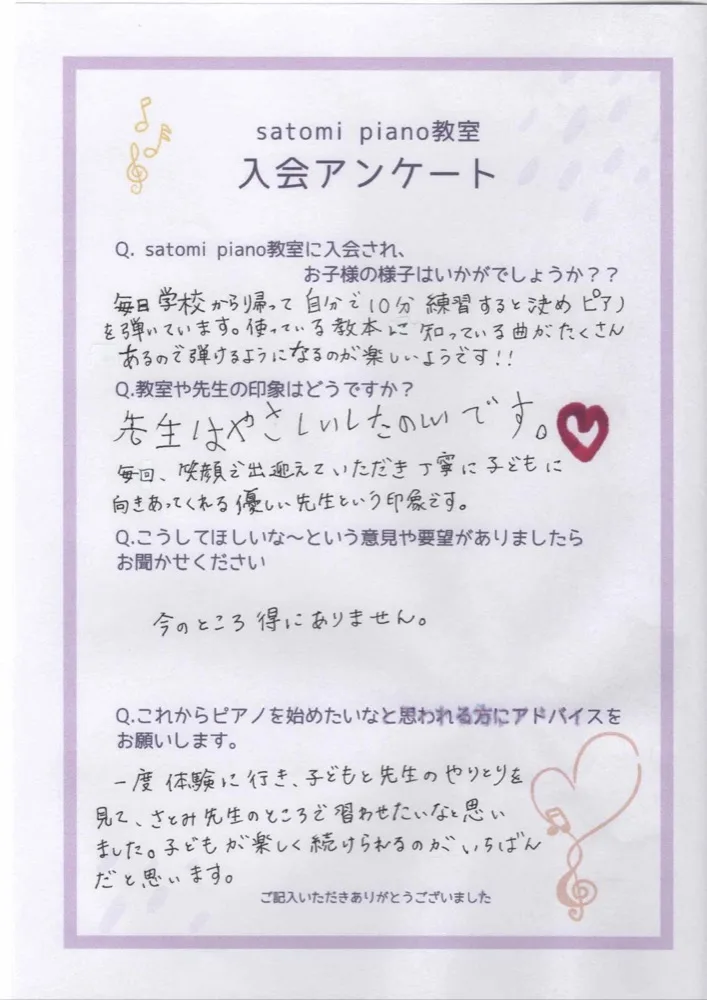 satomi piano教室
入会アンケート
Q. satomi piano教室に入会され、
お子様の様子はいかがでしょうか？？
毎日学校から帰って自分で10分練習すると決めピアノ
を弾いています。使っている教本に知っている曲がたくさん
あるので弾けるようになるのが楽しいようです!!
Q.教室や先生の印象はどうですか？
先生はやさしいしたのしいです。
毎回、笑顔で出迎えていただき丁寧に子どもに
向きあってくれる優しい先生という印象です。
Q.こうしてほしいな～という意見や要望がありましたら
お聞かせください
今のところ得にありません。
Q.これからピアノを始めたいなと思われる方にアドバイスを
お願いします。
一度体験に行き、子どもと先生のやりとりを
見て、さとみ先生のところで習わせたいなと思い
ました。子どもが楽しく続けられるのがいちばん
だと思います。
ご記入いただきありがとうございました